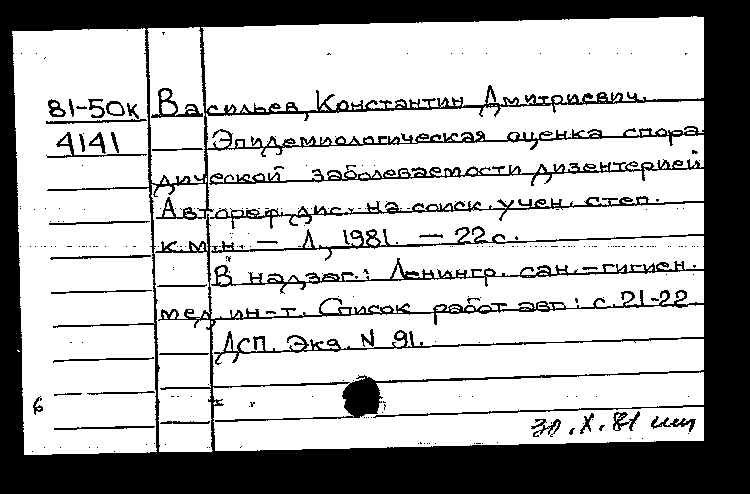 81-50к Васильев, Константин Дмитриевич.
4141 Эпидемиологическая оценка спора-
дической заболеваемости дизентерией
Автореф. дис. на соиск. учен. степ.
к.м.н. — Л., 1981. — 22 с.
В надзаг.: Ленингр. сан.-гигиен.
мед. ин-т. Список работ авт: с. 21-22
ДСП. Экз. N 91.
6
30.X.81